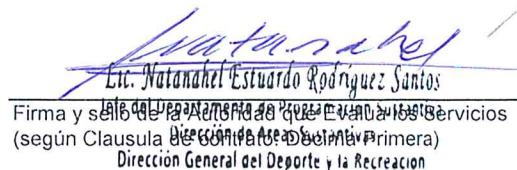 Natanahel
Lic. Natanahel Estuardo Rodríguez Santos
Jefe del Departamento de Programación Sustantiva
Firma y sello de la Autoridad que Evalúa los Servicios
Dirección de Areas Sustantivas
(según Clausula de contrato: Décima Primera)
Dirección General del Deporte y la Recreación